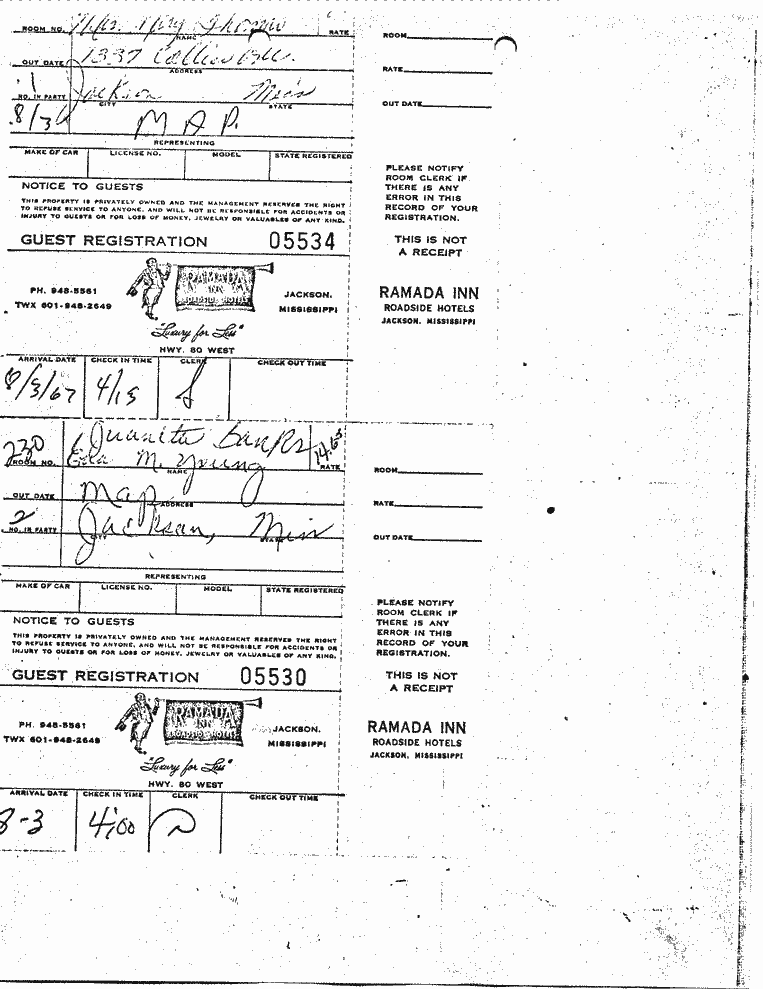 ROOM NO. Mrs. Mary Thomas
NAME RATE
OUT DATE 1337
ADDRESS
1
NO. IN PARTY Jackson Miss
CITY STATE
8/3 M A P.
REPRESENTING
MAKE OF CAR LICENSE NO. MODEL STATE REGISTERED
NOTICE TO GUESTS
THIS PROPERTY IS PRIVATELY OWNED AND THE MANAGEMENT RESERVES THE RIGHT
TO REFUSE SERVICE TO ANYONE, AND WILL NOT BE RESPONSIBLE FOR ACCIDENTS OR
INJURY TO GUESTS OR FOR LOSS OF MONEY, JEWELRY OR VALUABLES OF ANY KIND.
GUEST REGISTRATION 05534
PH. 948-5561
TWX 601-948-2649
RAMADA
INN
ROADSIDE HOTELS
JACKSON,
MISSISSIPPI
"Luxury for Less"
HWY. 80 WEST
ARRIVAL DATE CHECK IN TIME CLERK CHECK OUT TIME
8/3/67 4/15
ROOM
RATE
OUT DATE
PLEASE NOTIFY
ROOM CLERK IF
THERE IS ANY
ERROR IN THIS
RECORD OF YOUR
REGISTRATION.
THIS IS NOT
A RECEIPT
RAMADA INN
ROADSIDE HOTELS
JACKSON, MISSISSIPPI
230 Juanita Banks 14.63
ROOM NO. M. Young RATE
NAME
OUT DATE Map
ADDRESS
2 Jackson, Miss
NO. IN PARTY CITY STATE
REPRESENTING
MAKE OF CAR LICENSE NO. MODEL STATE REGISTERED
NOTICE TO GUESTS
THIS PROPERTY IS PRIVATELY OWNED AND THE MANAGEMENT RESERVES THE RIGHT
TO REFUSE SERVICE TO ANYONE, AND WILL NOT BE RESPONSIBLE FOR ACCIDENTS OR
INJURY TO GUESTS OR FOR LOSS OF MONEY, JEWELRY OR VALUABLES OF ANY KIND.
GUEST REGISTRATION 05530
PH. 948-5561
TWX 601-948-2649
RAMADA
INN
ROADSIDE HOTELS
JACKSON,
MISSISSIPPI
"Luxury for Less"
HWY. 80 WEST
ARRIVAL DATE CHECK IN TIME CLERK CHECK OUT TIME
8-3 4:00
ROOM
RATE
OUT DATE
PLEASE NOTIFY
ROOM CLERK IF
THERE IS ANY
ERROR IN THIS
RECORD OF YOUR
REGISTRATION.
THIS IS NOT
A RECEIPT
RAMADA INN
ROADSIDE HOTELS
JACKSON, MISSISSIPPI